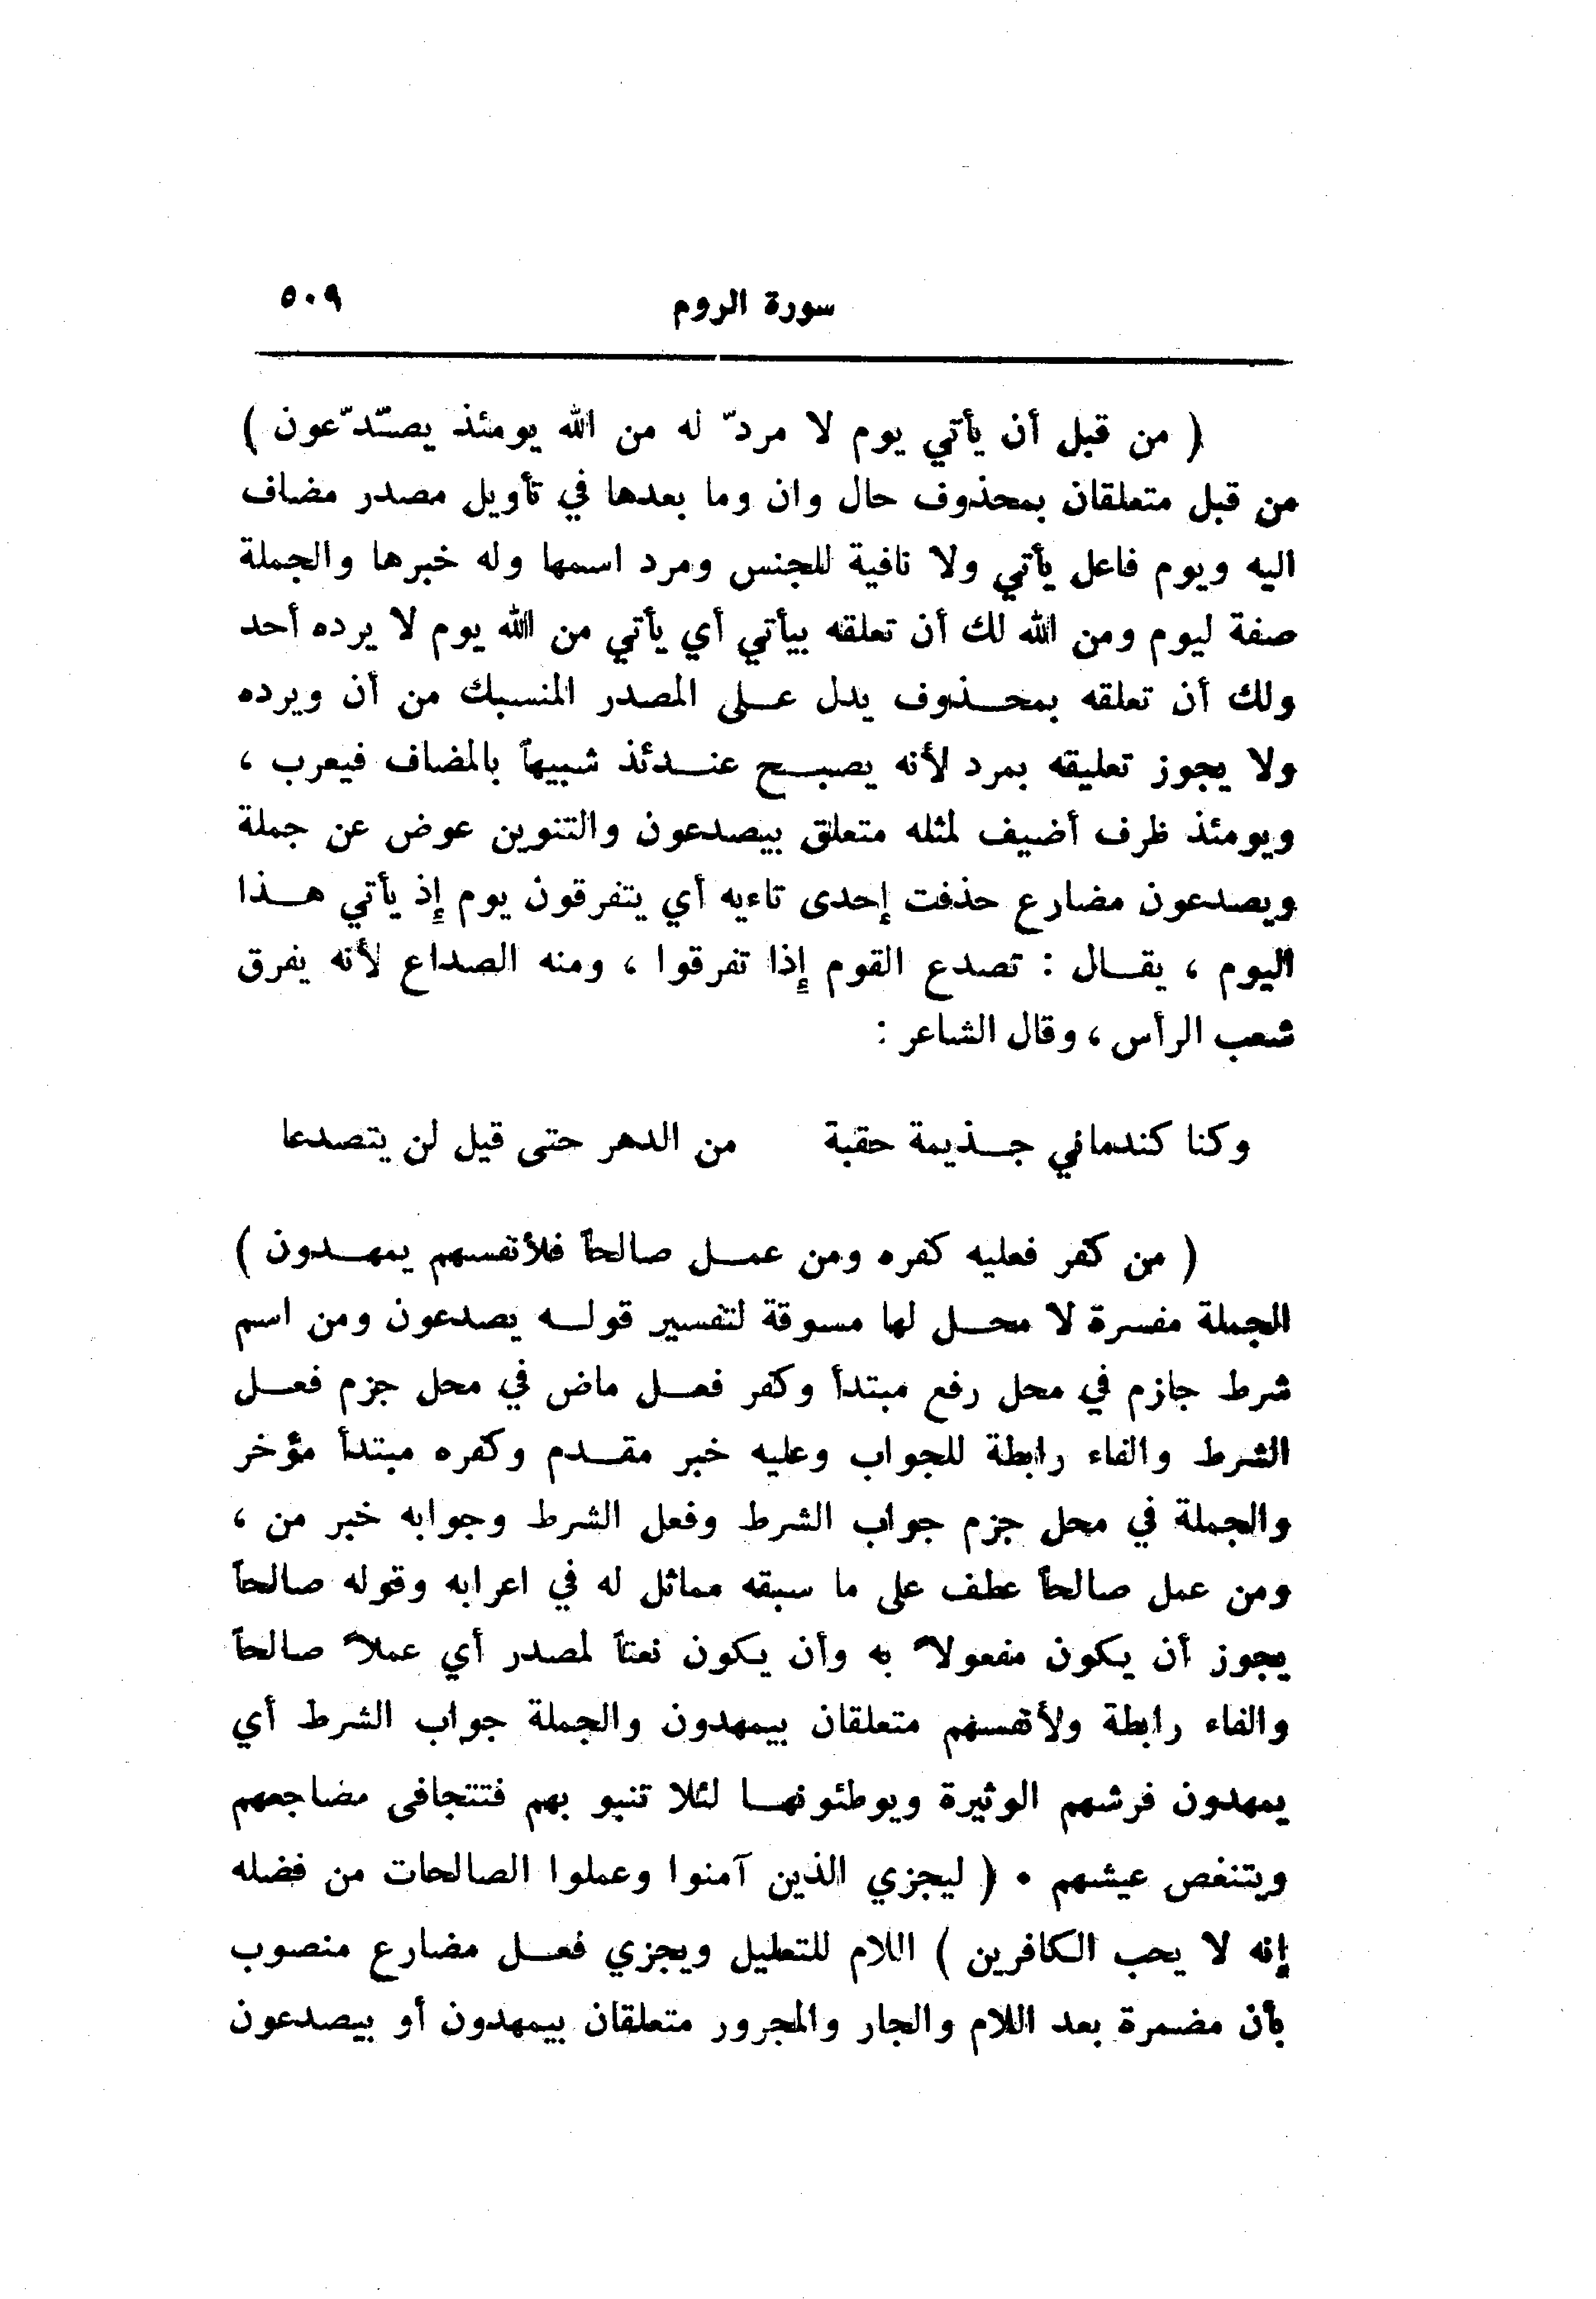 سورة الروم ٥٠٩
( من قبل أن يأتي يوم لا مردّ له من الله يومئذ يصّدّعون )
من قبل متعلقان بمحذوف حال وان وما بعدها في تأويل مصدر مضاف
اليه ويوم فاعل يأتي ولا نافية للجنس ومرد اسمها وله خبرها والجملة
صفة ليوم ومن الله لك أن تعلقه بيأتي أي يأتي من الله يوم لا يرده أحد
ولك أن تعلقه بمحذوف يدل على المصدر المنسبك من أن ويرده
ولا يجوز تعليقه بمرد لأنه يصبح عندئذ شبيهاً بالمضاف فيعرب ،
ويومئذ ظرف أضيف لمثله متعلق بيصدعون والتنوين عوض عن جملة
ويصدعون مضارع حذفت إحدى تاءيه أي يتفرقون يوم إذ يأتي هذا
اليوم ، يقال : تصدع القوم إذا تفرقوا ، ومنه الصداع لأنه يفرق
شعب الرأس ، وقال الشاعر :
وكنا كندماني جذيمة حقبة من الدهر حتى قيل لن يتصدعا
( من كفر فعليه كفره ومن عمل صالحاً فلأنفسهم يمهدون )
الجملة مفسرة لا محل لها مسوقة لتفسير قوله يصدعون ومن اسم
شرط جازم في محل رفع مبتدأ وكفر فعل ماض في محل جزم فعل
الشرط والفاء رابطة للجواب وعليه خبر مقدم وكفره مبتدأ مؤخر
والجملة في محل جزم جواب الشرط وفعل الشرط وجوابه خبر من ،
ومن عمل صالحاً عطف على ما سبقه مماثل له في اعرابه وقوله صالحاً
يجوز أن يكون مفعولاً به وأن يكون نعتاً لمصدر أي عملاً صالحاً
والفاء رابطة ولأنفسهم متعلقان بيمهدون والجملة جواب الشرط أي
يمهدون فرشهم الوثيرة ويوطئونها لئلا تنبو بهم فتتجافى مضاجعهم
ويتنغص عيشهم • ( ليجزي الذين آمنوا وعملوا الصالحات من فضله
إنه لا يحب الكافرين ) اللام للتعليل ويجزي فعل مضارع منصوب
بأن مضمرة بعد اللام والجار والمجرور متعلقان بيمهدون أو بيصدعون